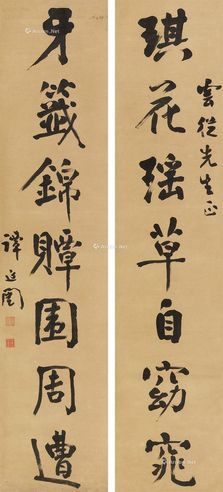 琪花瑶草自窈窕
雲從先生正
牙籤錦贉围周遭
譚延闓